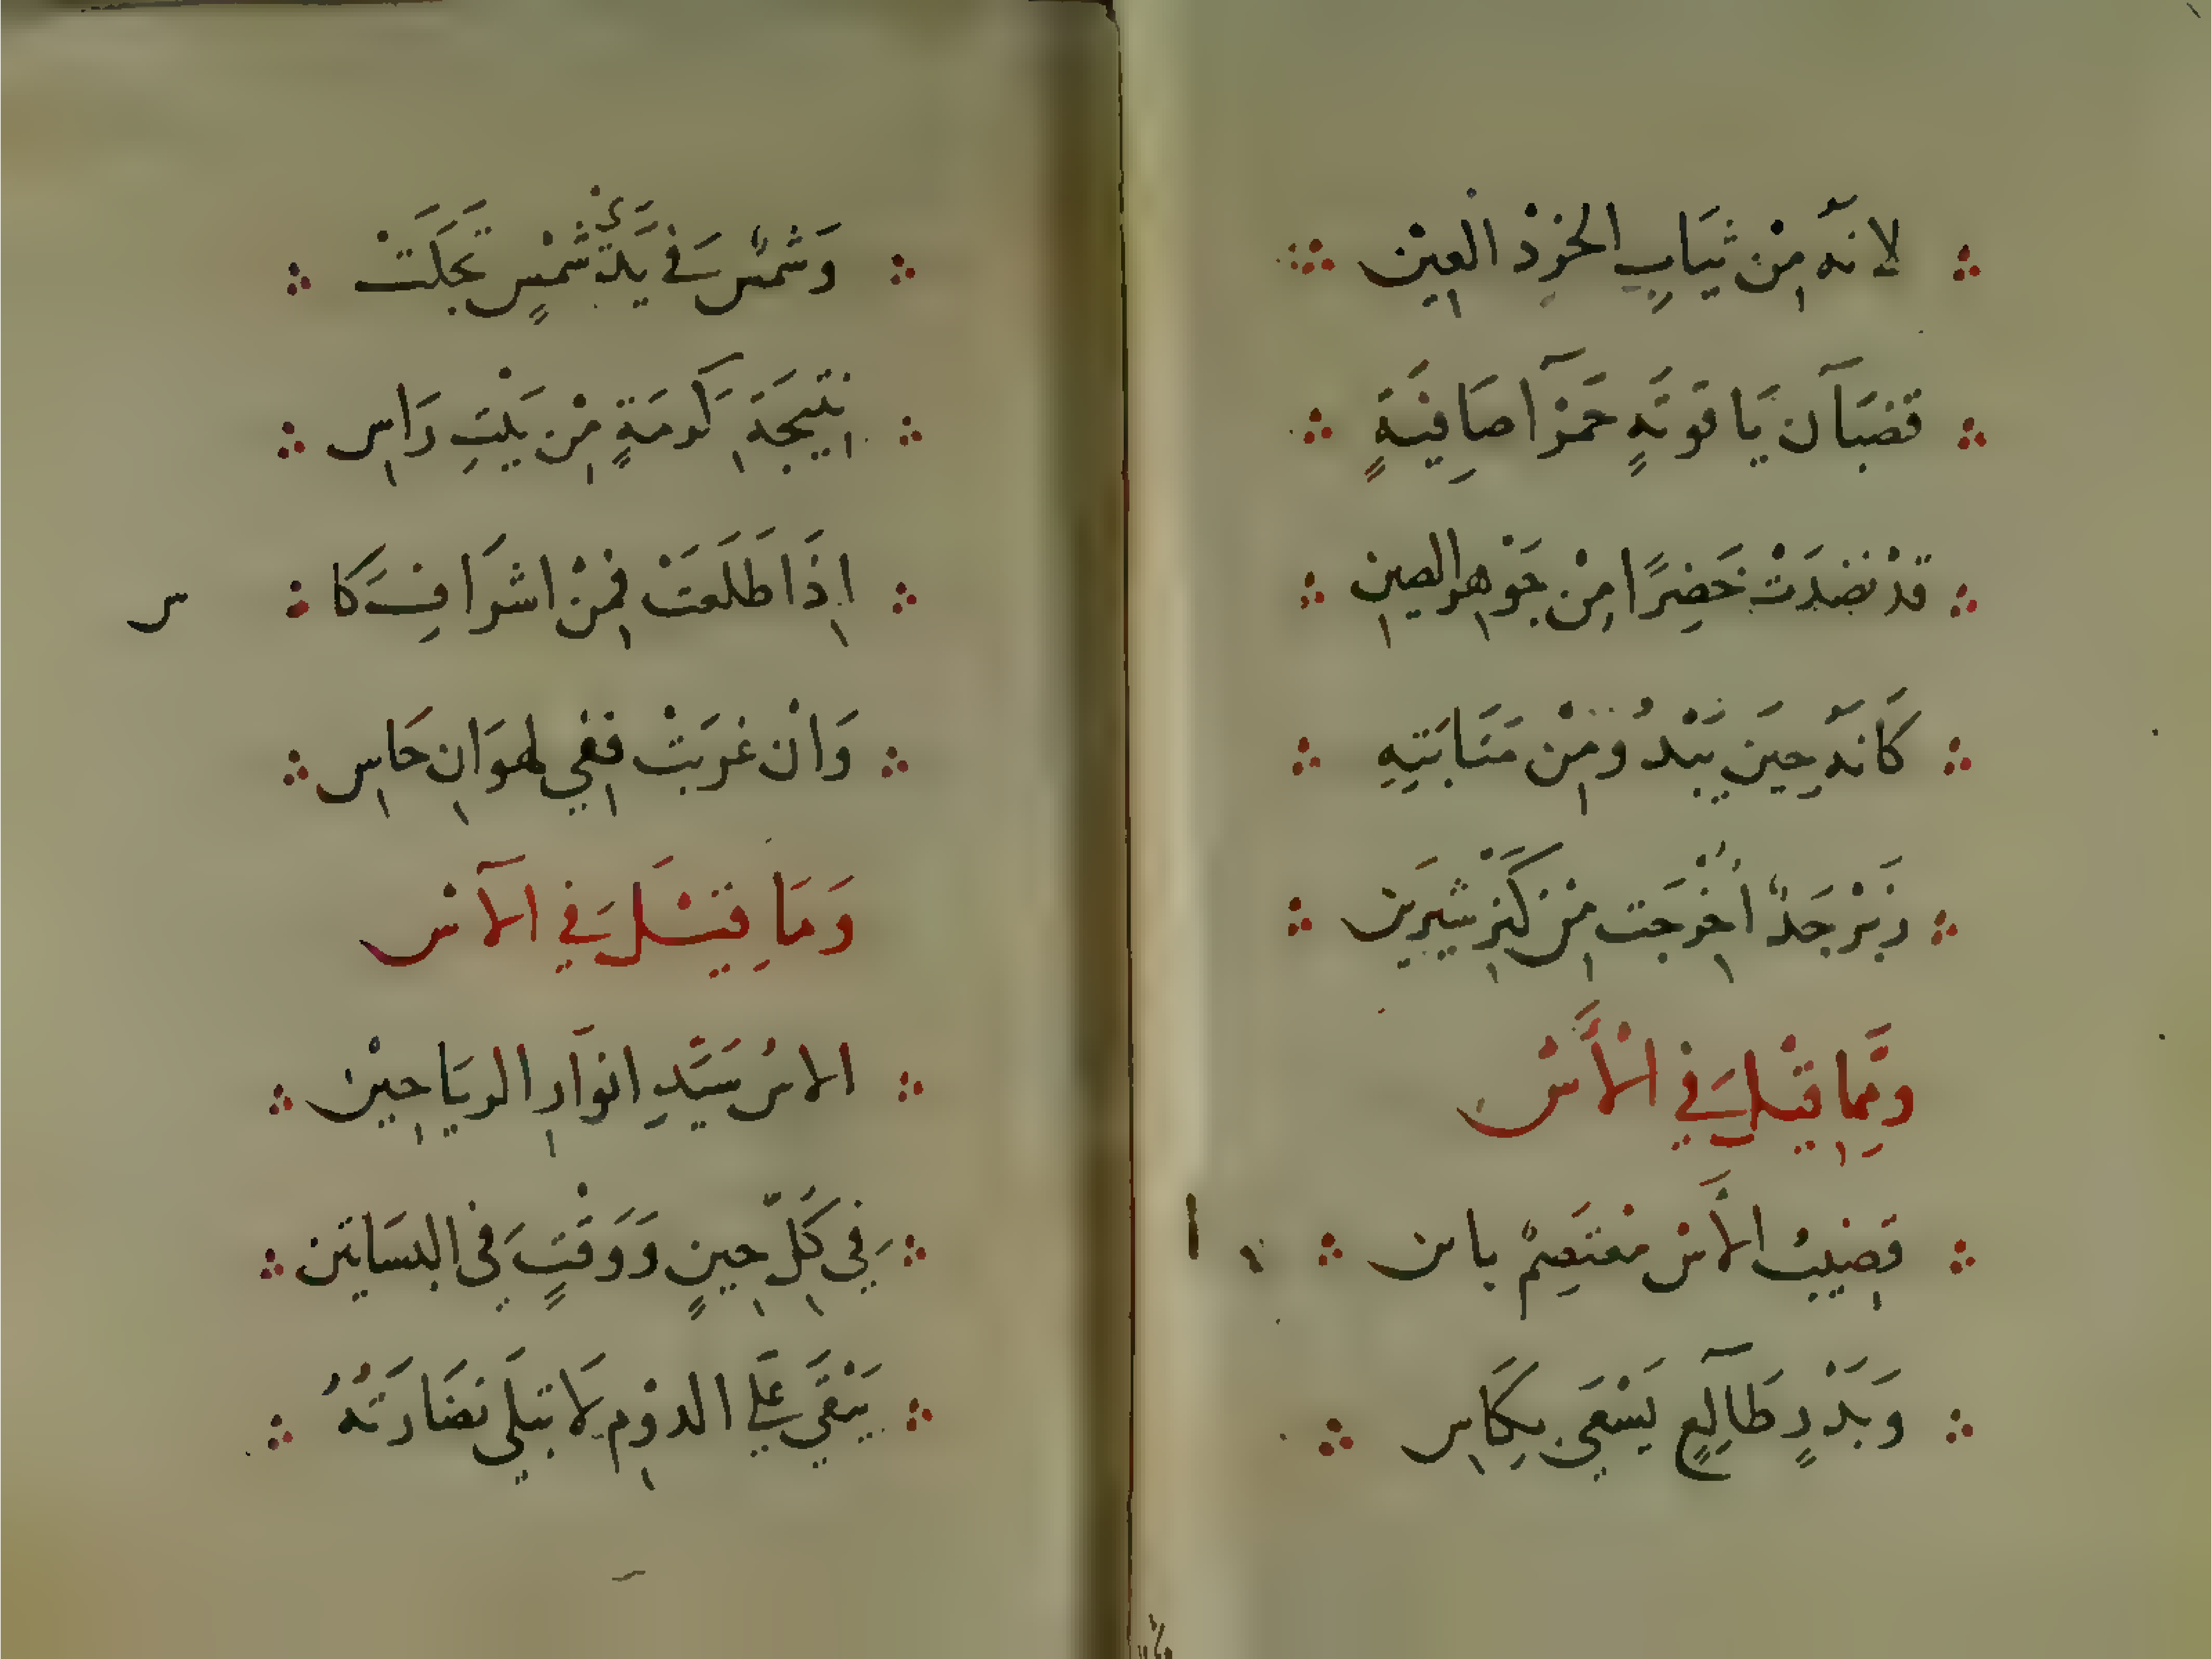 لانَهُ مِنْ ثيَابِ الخرَدْ العِيْنِ
قضبَآن يَاقوتَهٍ حَمرَآ صَافِيَةٍ
قدْ نضدَتْ خَضِرًا مِنْ جَوْهرِ الصينِ
كَانَهُ حِينَ يَبْدُو مِنْ مَنَابَتِهِ
زَبَرْجَدٌ اخْرجَت مِنْ كَنْزِ شيرَين
وَمِمَّا قيْلَ في الْأَسْ
قضِيبُ الاَس معْتَصِمٌ باس
وَبَدْرٍ طَالِعٍ يَسْعَى بِكَاسِ
وَشمْسٌ في يَدَيْ شَمْسٍ تَجَلَتْ
نتيجَة كَرمَةٍ مِنْ بَيْتِ رَاسِ
اِذَا طَلَعَتْ فمِنْ اشرَافِ كَا س
وَانْ غَرَبَتْ ففِي لهوَاتِ حَاسِ
وَمَا قِيْلَ في الآسْ
الاسُ سَيّدِ انوَارِ الريَاحِيْن
في كُلِّ حِينٍ وَوَقْتٍ في البسَاتين
يَبْقَى عَلَى الدوْمِ لَا تبلَى نضَارَتُهُ